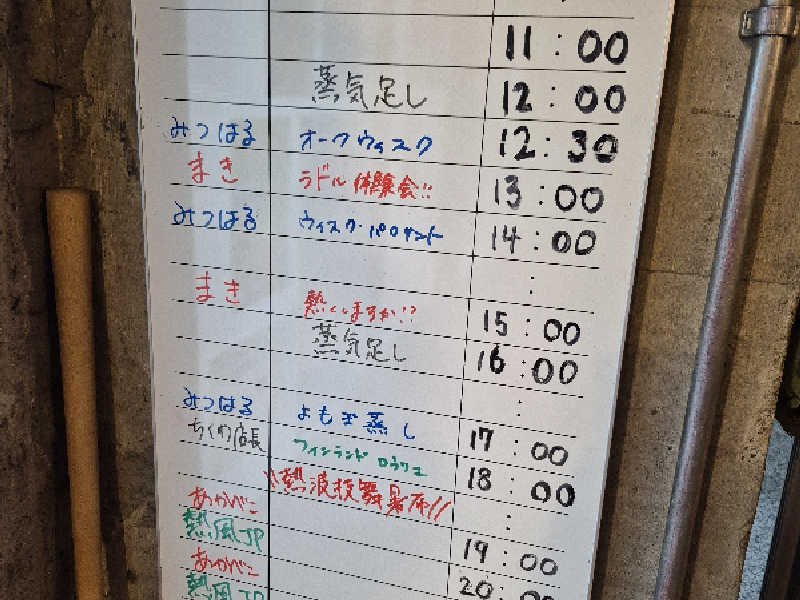 11:00
蒸気足し 12:00
みつはる オークウィスク 12:30
まき ラドル体験会!! 13:00
みつはる ウィスク・パロサント 14:00
:
まき 熱くしますか!? 15:00
蒸気足し 16:00
:
みつはる よもぎ蒸し 17:00
ちくわ店長 フィンランド ロウリュ 18:00
熱波
:
あかべこ
熱風JP 19:00
あかべこ
熱風JP 20:00